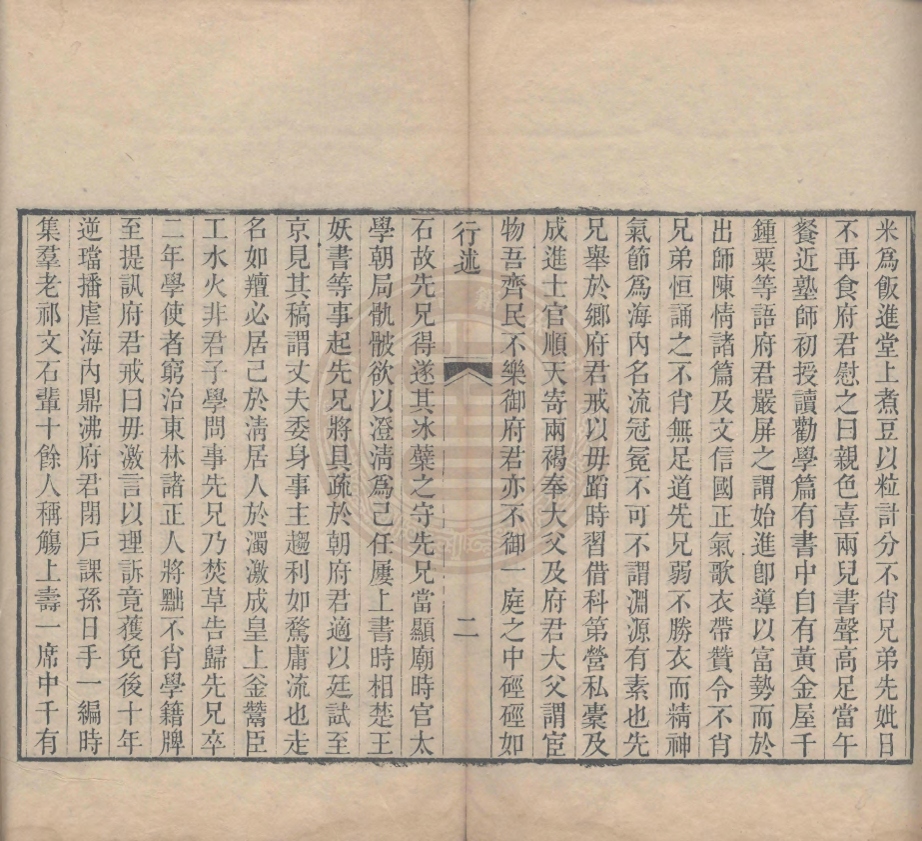 米爲飯進堂上煮豆以粒計分不肖兄弟先妣日
不再食府君慰之曰親色喜兩兒書聲高足當午
餐近塾師初授讀勸學篇有書中自有黃金屋千
鍾粟等語府君嚴屏之謂始進卽導以富勢而於
出師陳情諸篇及文信國正氣歌衣帶贊令不肖
兄弟恒誦之不肖無足道先兄弱不勝衣而精神
氣節爲海內名流冠冕不可不謂淵源有素也先
兄舉於鄉府君戒以毋蹈時習借科第營私橐及
成進士官順天寄兩褐奉大父及府君大父謂宦
物吾齊民不樂御府君亦不御一庭之中硜硜如
行述
二
石故先兄得遂其冰蘗之守先兄當顯廟時官太
學朝局骩骳欲以澄清爲己任屢上書時相楚王
妖書等事起先兄將具疏於朝府君適以廷試至
京見其稿謂丈夫委身事主趨利如騖庸流也走
名如羶必居己於清居人於濁激成皇上釜鬵臣
工水火非君子學問事先兄乃焚草告歸先兄卒
二年學使者窮治東林諸正人將黜不肖學籍牌
至提訊府君戒曰毋激言以理訴竟獲免後十年
逆璫播虐海內鼎沸府君閉戶課孫日手一編時
集羣老祁文石輩十餘人稱觴上壽一席中千有